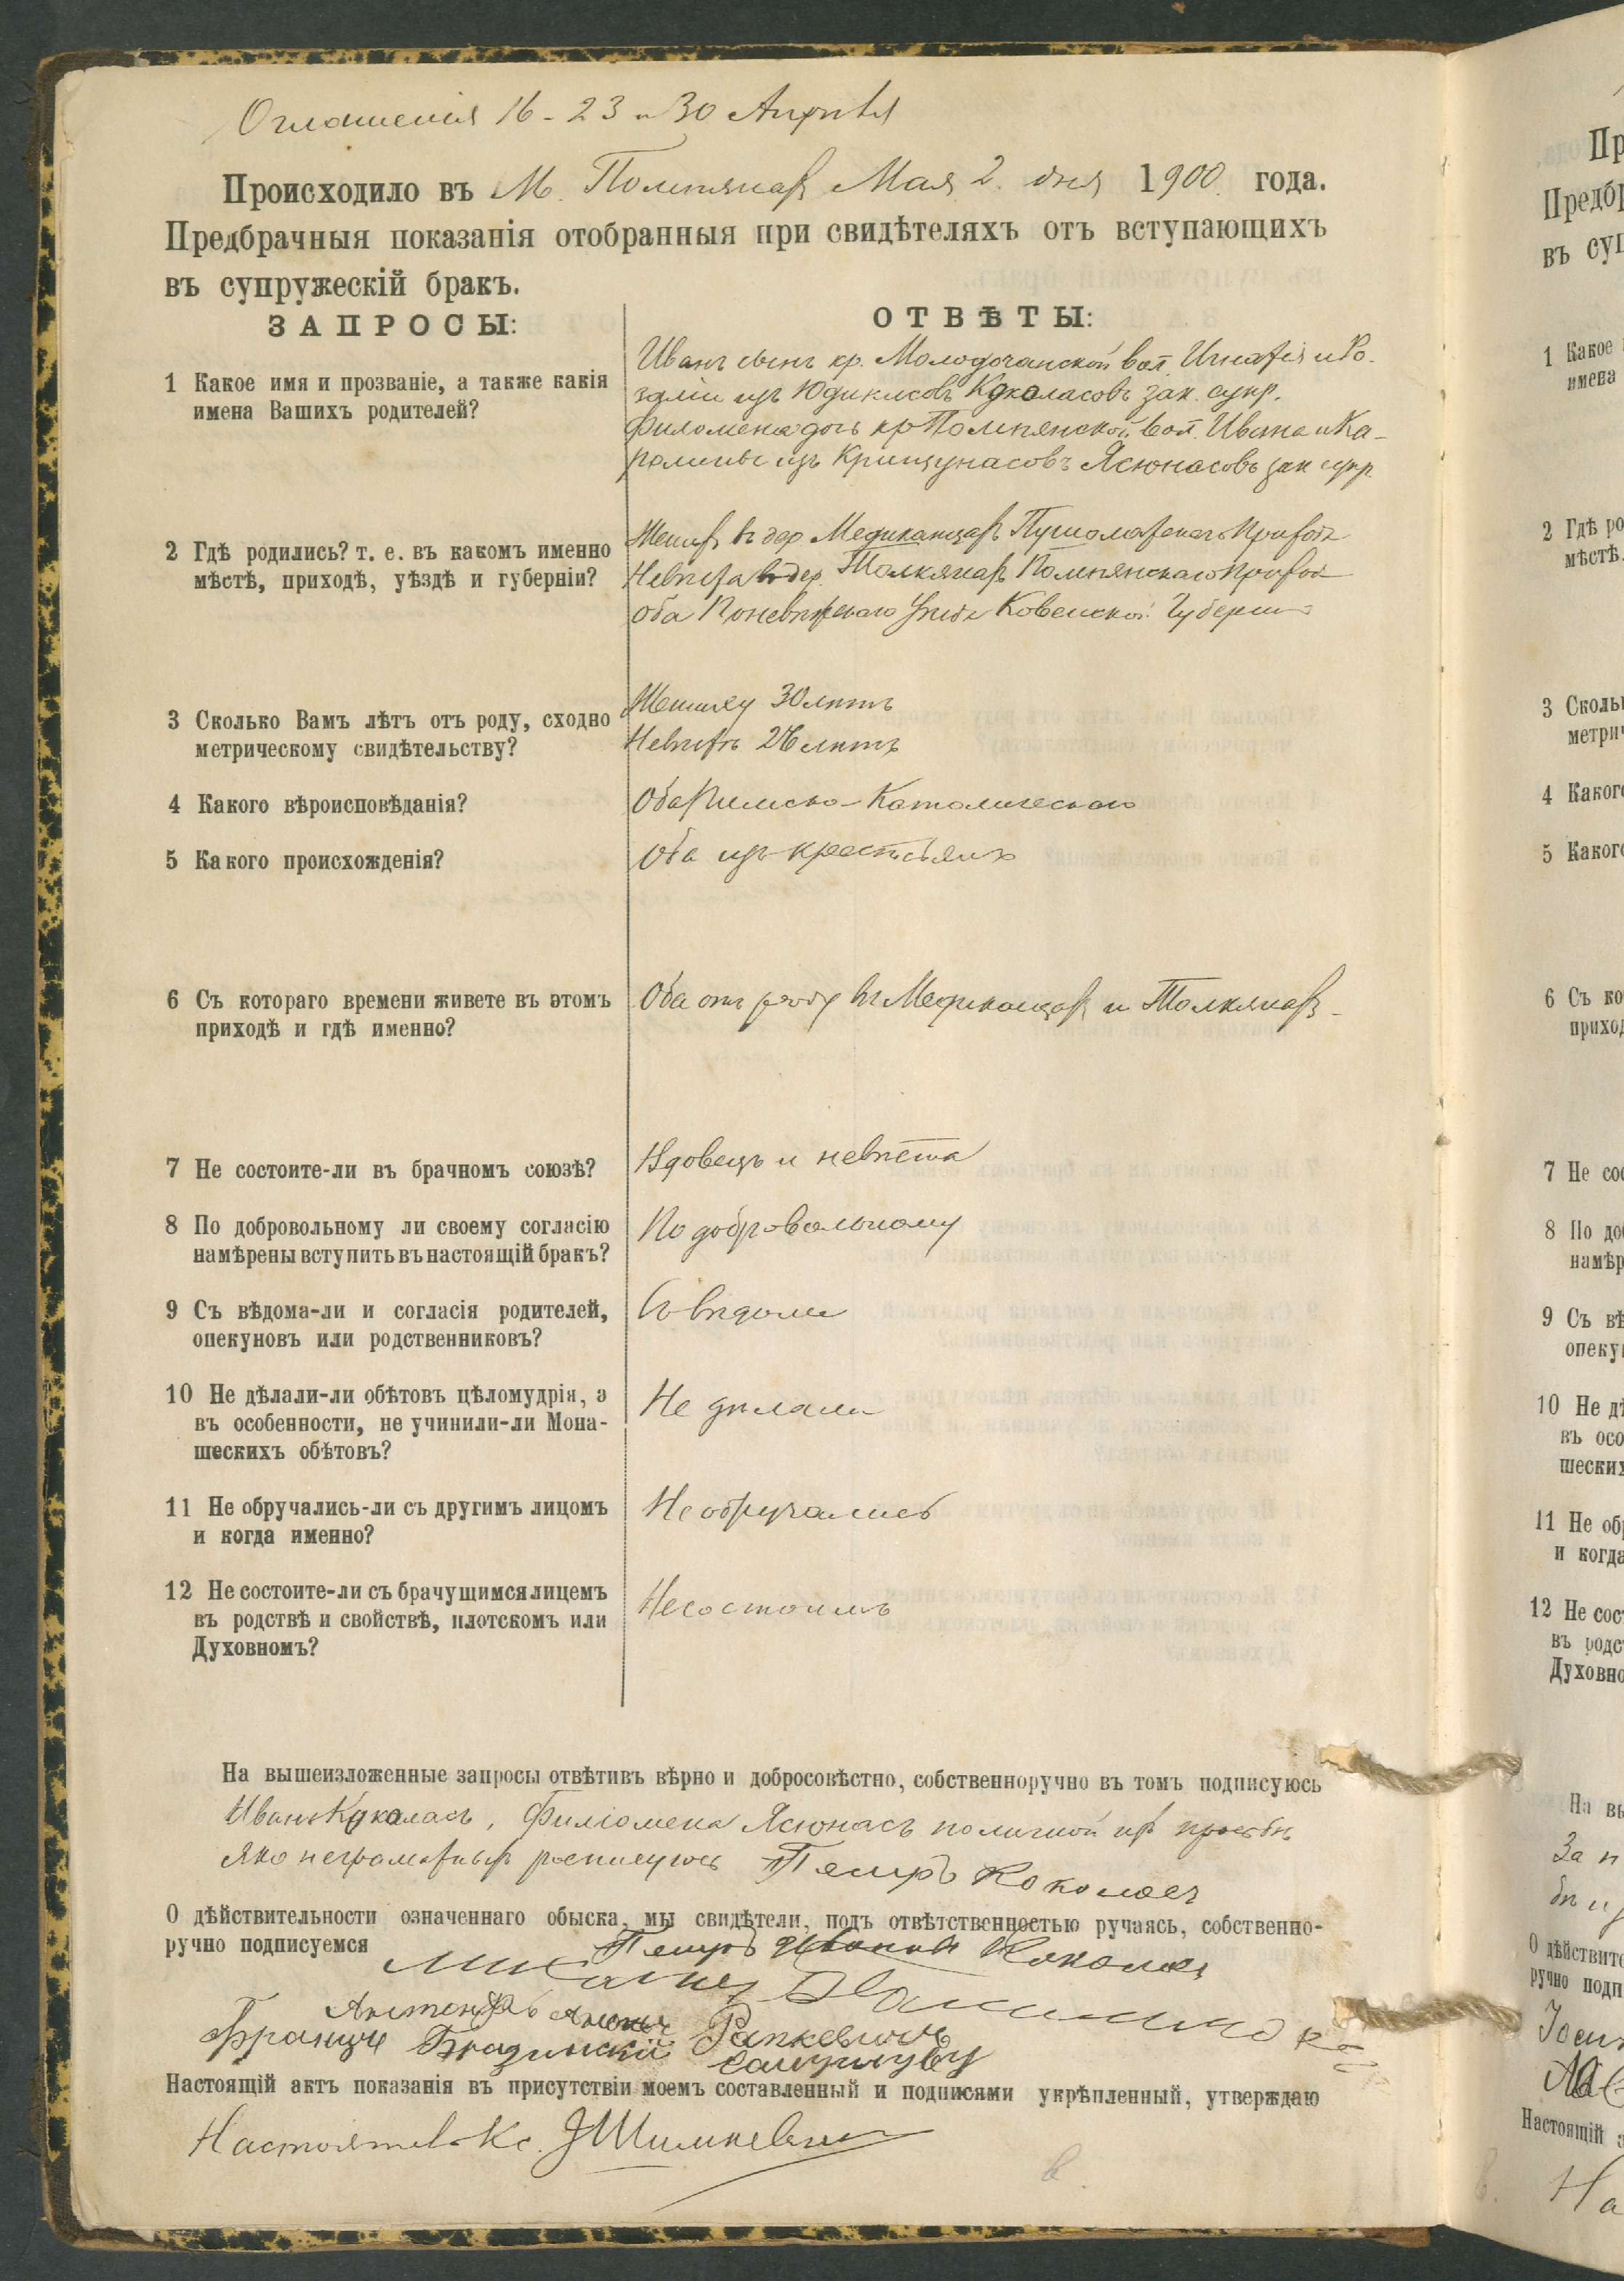 Оглашенія 16 - 23 и 30 Апрѣля
Происходило въ М. Помпянахъ Мая 2. дня 1900. года.
Предбрачныя показанія отобранныя при свидѣтеляхъ отъ вступающихъ
въ супружескій бракъ.
ЗАПРОСЫ:
ОТВѢТЫ:
1 Какое имя и прозваніе, а также какія
имена Вашихъ родителей?
Иванъ сынъ кр. Молодочанской вол. Игнатія и Ро-
заліи изъ Юдикисовъ Кукаласовъ зак. супр.
Филомена дочь кр Помпянской вол. Ивана и Ка-
ролины изъ Крищунасовъ Ясюнасовъ зак супр.
2 Гдѣ родились? т. е. въ какомъ именно
мѣстѣ, приходѣ, уѣздѣ и губерніи?
Женихъ въ дер Медиканцахъ Пушолатскаго Прихода
Невѣста въ дер. Толкянахъ Помпянскаго Прихода
Оба Поневѣжскаго Уѣзда Ковенской Губерніи
3 Сколько Вамъ лѣтъ отъ роду, сходно
метрическому свидѣтельству?
Жениху 30 лѣтъ
Невѣстѣ 26 лѣтъ
4 Какого вѣроисповѣданія?
Оба Римско-Католическаго
5 Какого происхожденія?
Оба изъ крестьянъ
6 Съ котораго времени живете въ этомъ
приходѣ и гдѣ именно?
Оба отъ роду въ Медиканцахъ и Толкянахъ -
7 Не состоите-ли въ брачномъ союзѣ?
Вдовецъ и невѣста
8 По добровольному ли своему согласію
намѣрены вступить въ настоящій бракъ?
По добровольному
9 Съ вѣдома-ли и согласія родителей,
опекуновъ или родственниковъ?
Съ вѣдома
10 Не дѣлали-ли обѣтовъ цѣломудрія, а
въ особенности, не учинили-ли Мона-
шескихъ обѣтовъ?
Не дѣлали
11 Не обручались-ли съ другимъ лицомъ
и когда именно?
Не обручались
12 Не состоите-ли съ брачущимся лицемъ
въ родствѣ и свойствѣ, плотскомъ или
Духовномъ?
Не состоимъ
На вышеизложенные запросы отвѣтивъ вѣрно и добросовѣстно, собственноручно въ томъ подписуюсь
Иванъ Кукаласъ, Филомена Ясюнасъ по личной ихъ просьбѣ
яко неграмотныхъ росписуюсь Петръ Коколасъ
О дѣйствительности означеннаго обыска, мы свидѣтели, подъ отвѣтственностью ручаясь, собственно-
ручно подписуемся
Петръ Коколас
Антонъ Рапкевичъ
Францъ
Настоящій актъ показанія въ присутствіи моемъ составленный и подписями укрѣпленный, утверждаю
Настоятель Кс.